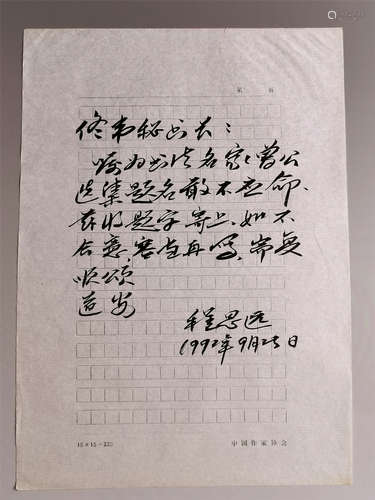 第 页
佟韦秘书长:
嘱为书法名家曾公
选集题名敢不应命、
兹将题字寄上、如不
合意、容当再写、耑复
顺颂
道安
程思远
1992年9月25日
15×15=225
中国作家协会